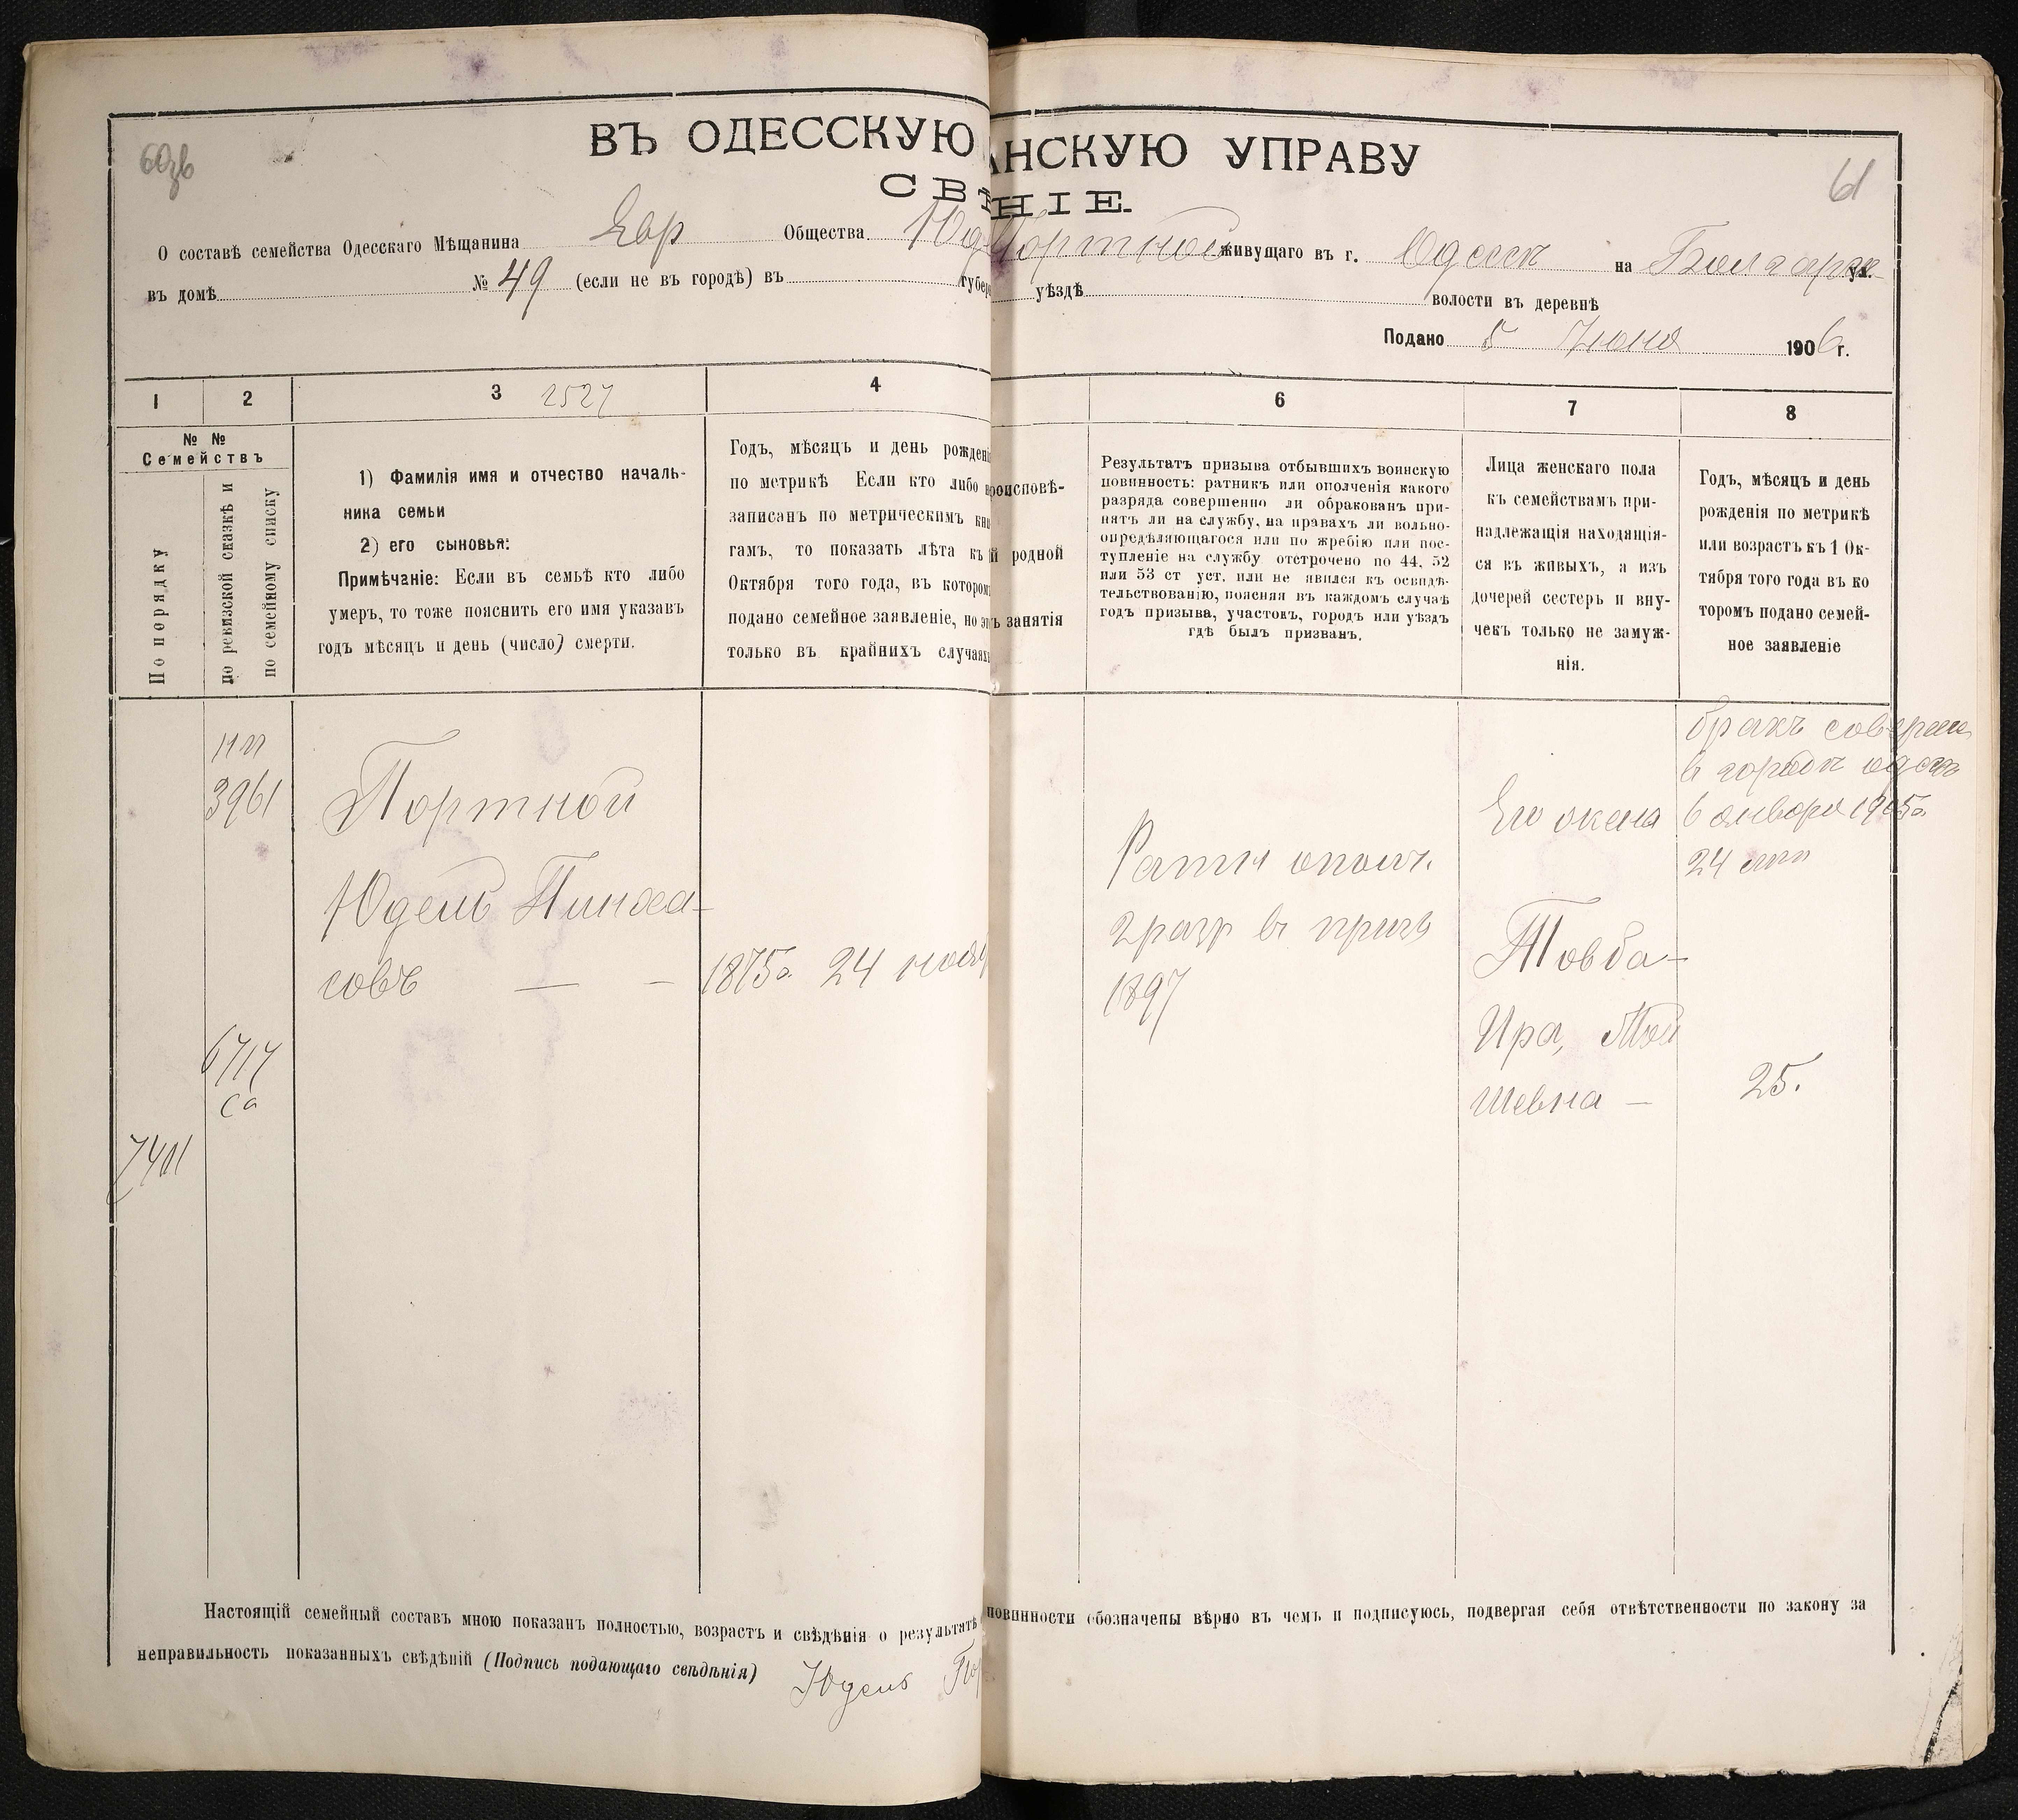 ВЪ ОДЕССКУЮ
АНСКУЮ УПРАВУ
60зв
61
СВѢ
НІЕ.
О составѣ семейства Одесскаго Мѣщанина Евр Общества Юд Портной живущаго въ г. Одессѣ на Болгарск ул.
въ домѣ № 49 (если не въ городѣ) въ губер уѣздѣ волости въ деревнѣ
Подано 5 Июня 1906 г.
1
2
3 2527
4
6
7
8
№ №
Семействъ
По порядку
по ревизской сказкѣ и
по семейному списку
1) Фамилія имя и отчество началь-
ника семьи
2) его сыновья:
Примѣчаніе: Если въ семьѣ кто либо
умеръ, то тоже пояснить его имя указавъ
годъ мѣсяцъ и день (число) смерти.
Годъ, мѣсяцъ и день рожден
по метрикѣ Если кто либо
записанъ по метрическимъ кни
гамъ, то показать лѣта къ
Октября того года, въ котором
подано семейное заявленіе, но эт
только въ крайнихъ случаях
роисповѣ-
й родной
ъ занятія
Результатъ призыва отбывшихъ воинскую
повинность: ратникъ или ополченія какого
разряда совершенно ли обракованъ при-
нятъ ли на службу, на правахъ ли вольно-
опредѣляющагося или по жребію или пос-
тупленіе на службу отстрочено по 44, 52
или 53 ст уст. или не явился къ освидѣ-
тельствованію, поясняя въ каждомъ случаѣ
годъ призыва, участокъ, городъ или уѣздъ
гдѣ былъ призванъ.
Лица женскаго пола
къ семействамъ при-
надлежащія находящія-
ся въ живыхъ, а изъ
дочерей сестеръ и вну-
чекъ только не замуж-
нія.
Годъ, мѣсяцъ и день
рожденія по метрикѣ
или возрастъ къ 1 Ок-
тября того года въ ко
торомъ подано семей-
ное заявленіе
3961
Портной
Юдель Пинха-
совъ — —
1875г. 24 нояб
6717
са
7401
Ратн ополч.
2 разр въ призв
1897
Его жена
Товба-
Ира, Мой
шевна —
бракъ соверш
в городѣ одесѣ
6 января 1905г.
24 лѣт
25.
Настоящій семейный составъ мною показанъ полностью, возрастъ и свѣдѣнія о результатѣ повинности обозначены вѣрно въ чемъ и подписуюсь, подвергая себя отвѣтственности по закону за
неправильность показанныхъ свѣдѣній (Подпись подающаго свѣдѣнія) Юдель Пор